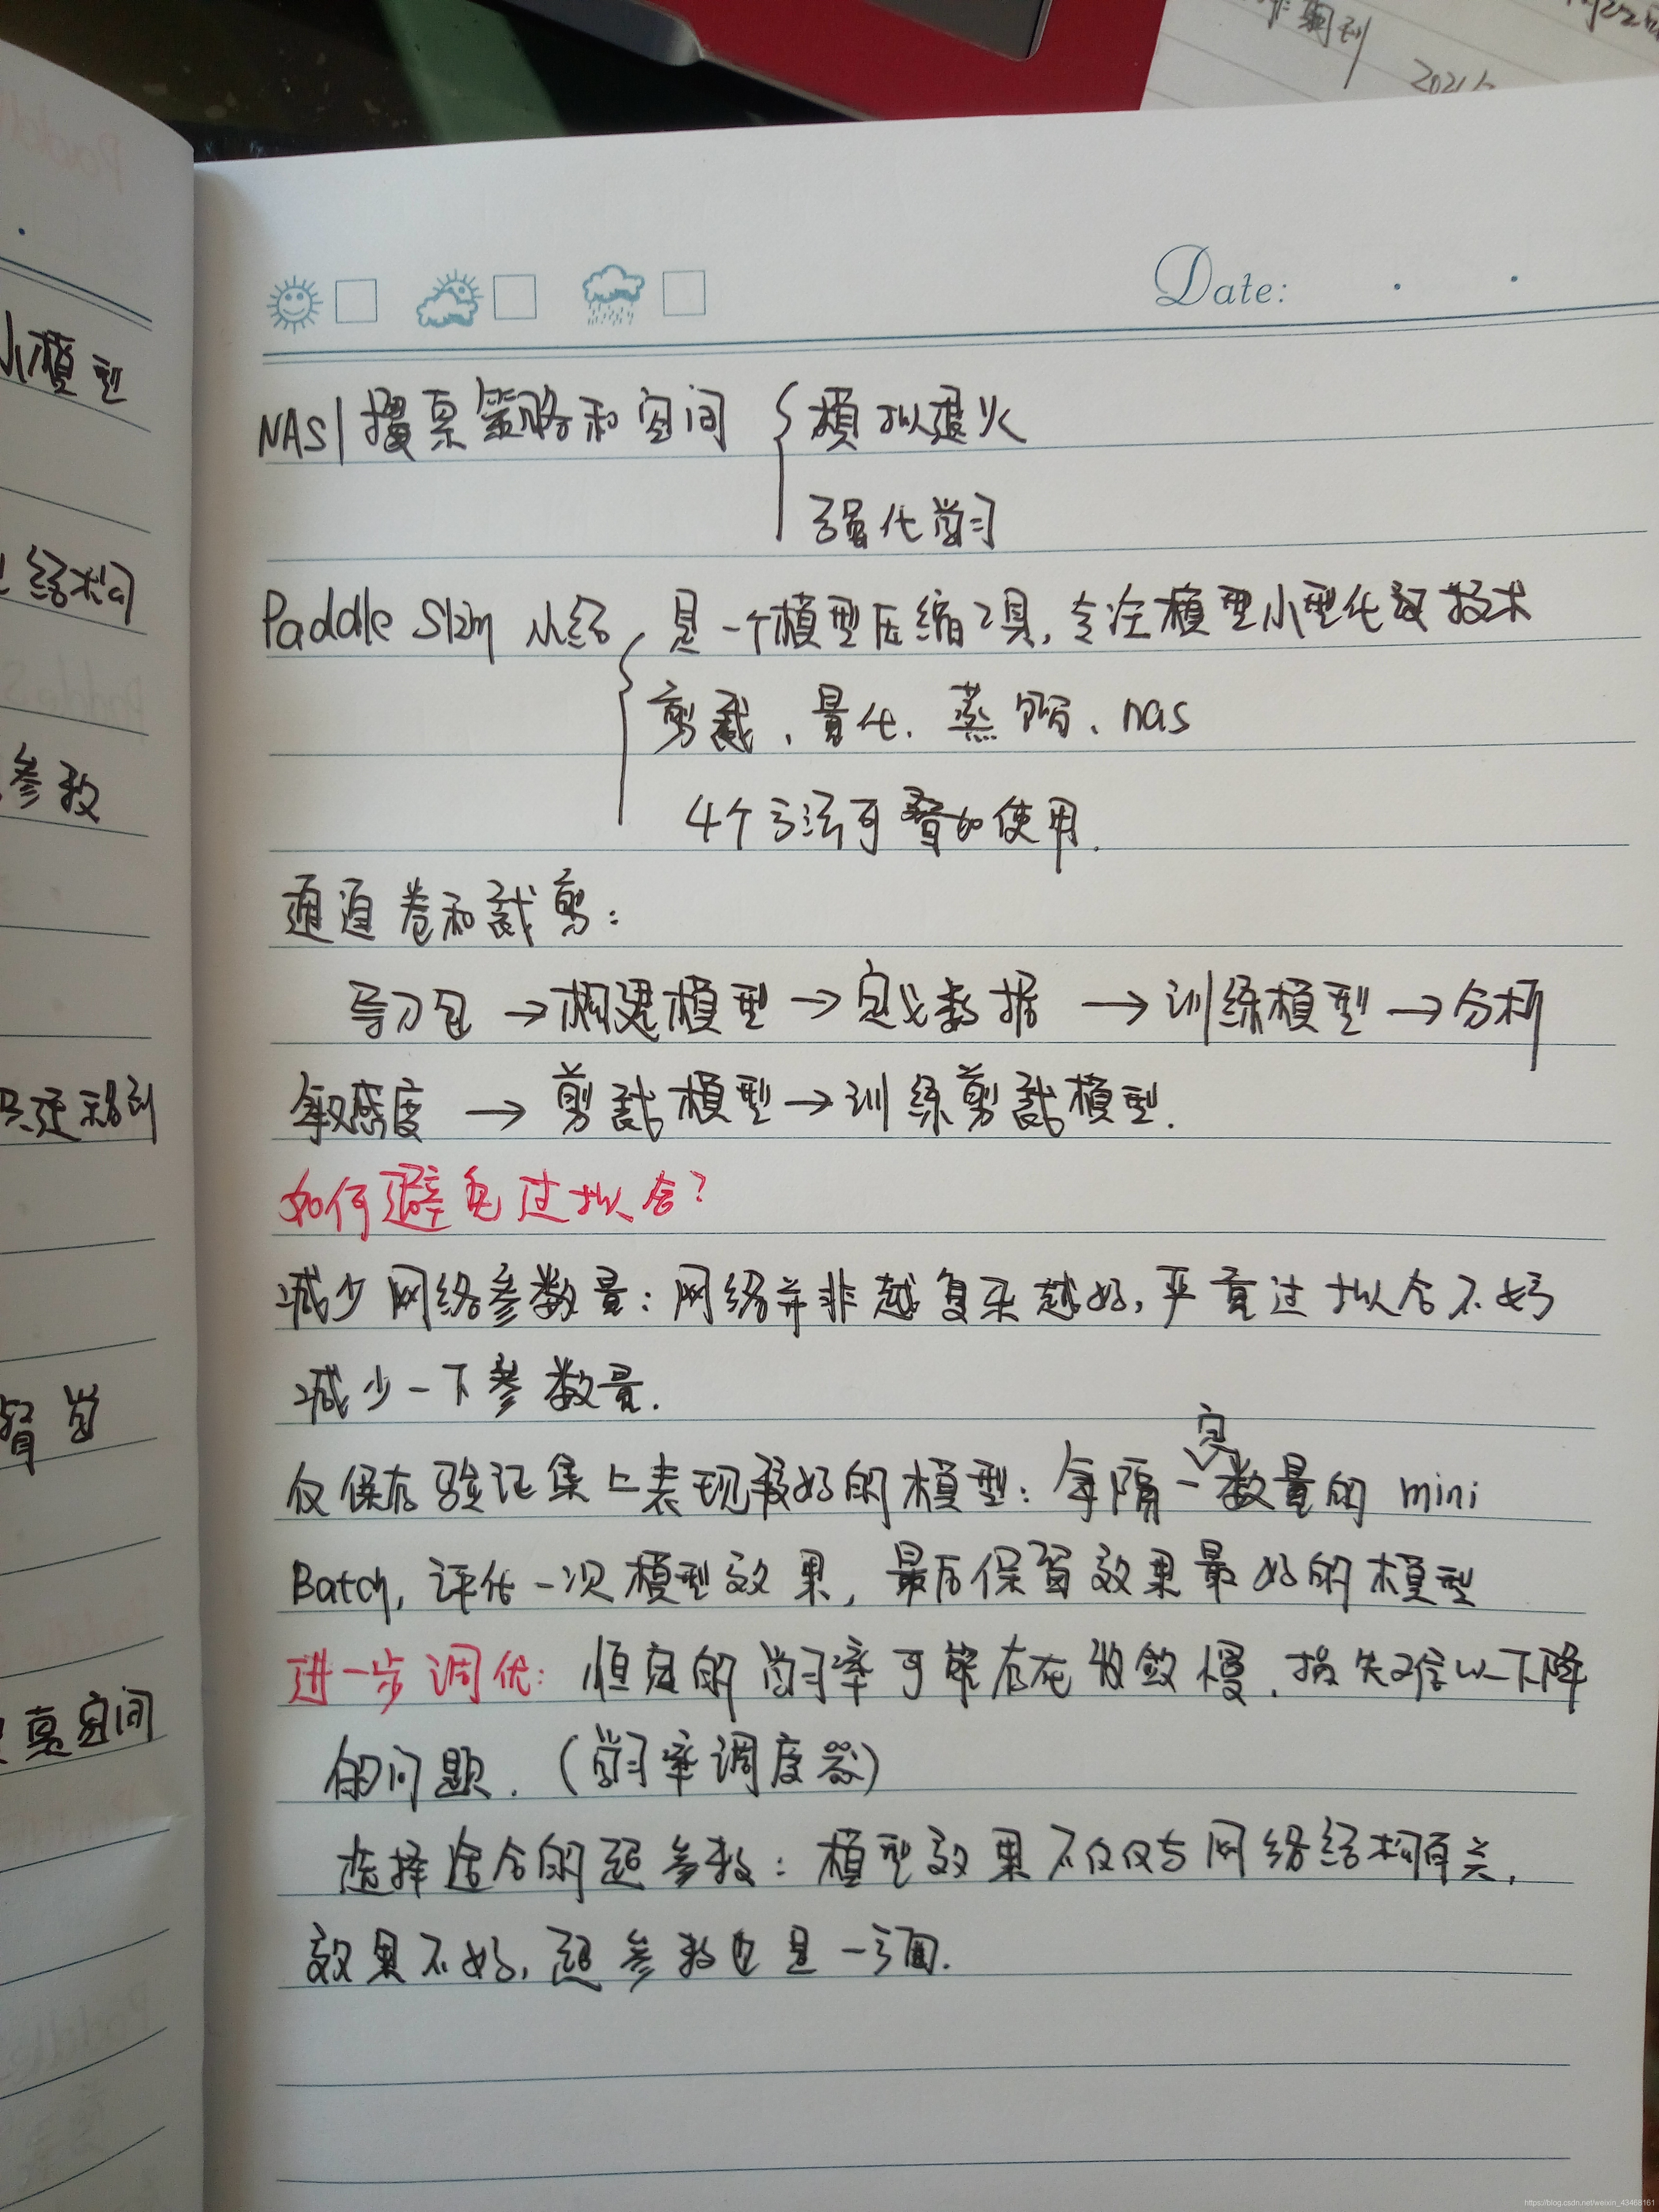 小模型
结构
参数
空间
Date:
NAS | 搜索策略和空间 { 模拟退火
强化学习
Paddle Slim 小结, 是一个模型压缩工具, 专注模型小型化技术
剪裁、量化、蒸馏、nas
4个方法可叠加使用.
通道卷积裁剪:
导入包 → 构建模型 → 定义数据 → 训练模型 → 分析
敏感度 → 剪裁模型 → 训练剪裁模型.
如何避免过拟合?
减少网络参数量: 网络并非越复杂越好, 严重过拟合不如
减少一下参数量.
仅保存验证集上表现最好的模型: 每隔一定数量的 mini
Batch, 评估一次模型效果, 最后保留效果最好的模型
进一步调优: 恒定的学习率可能存在收敛慢, 损失难以下降
的问题. (学习率调度器)
选择适合的超参数: 模型效果不仅仅与网络结构有关,
效果不好, 超参数也是一方面.
https://blog.csdn.net/weixin_43468161